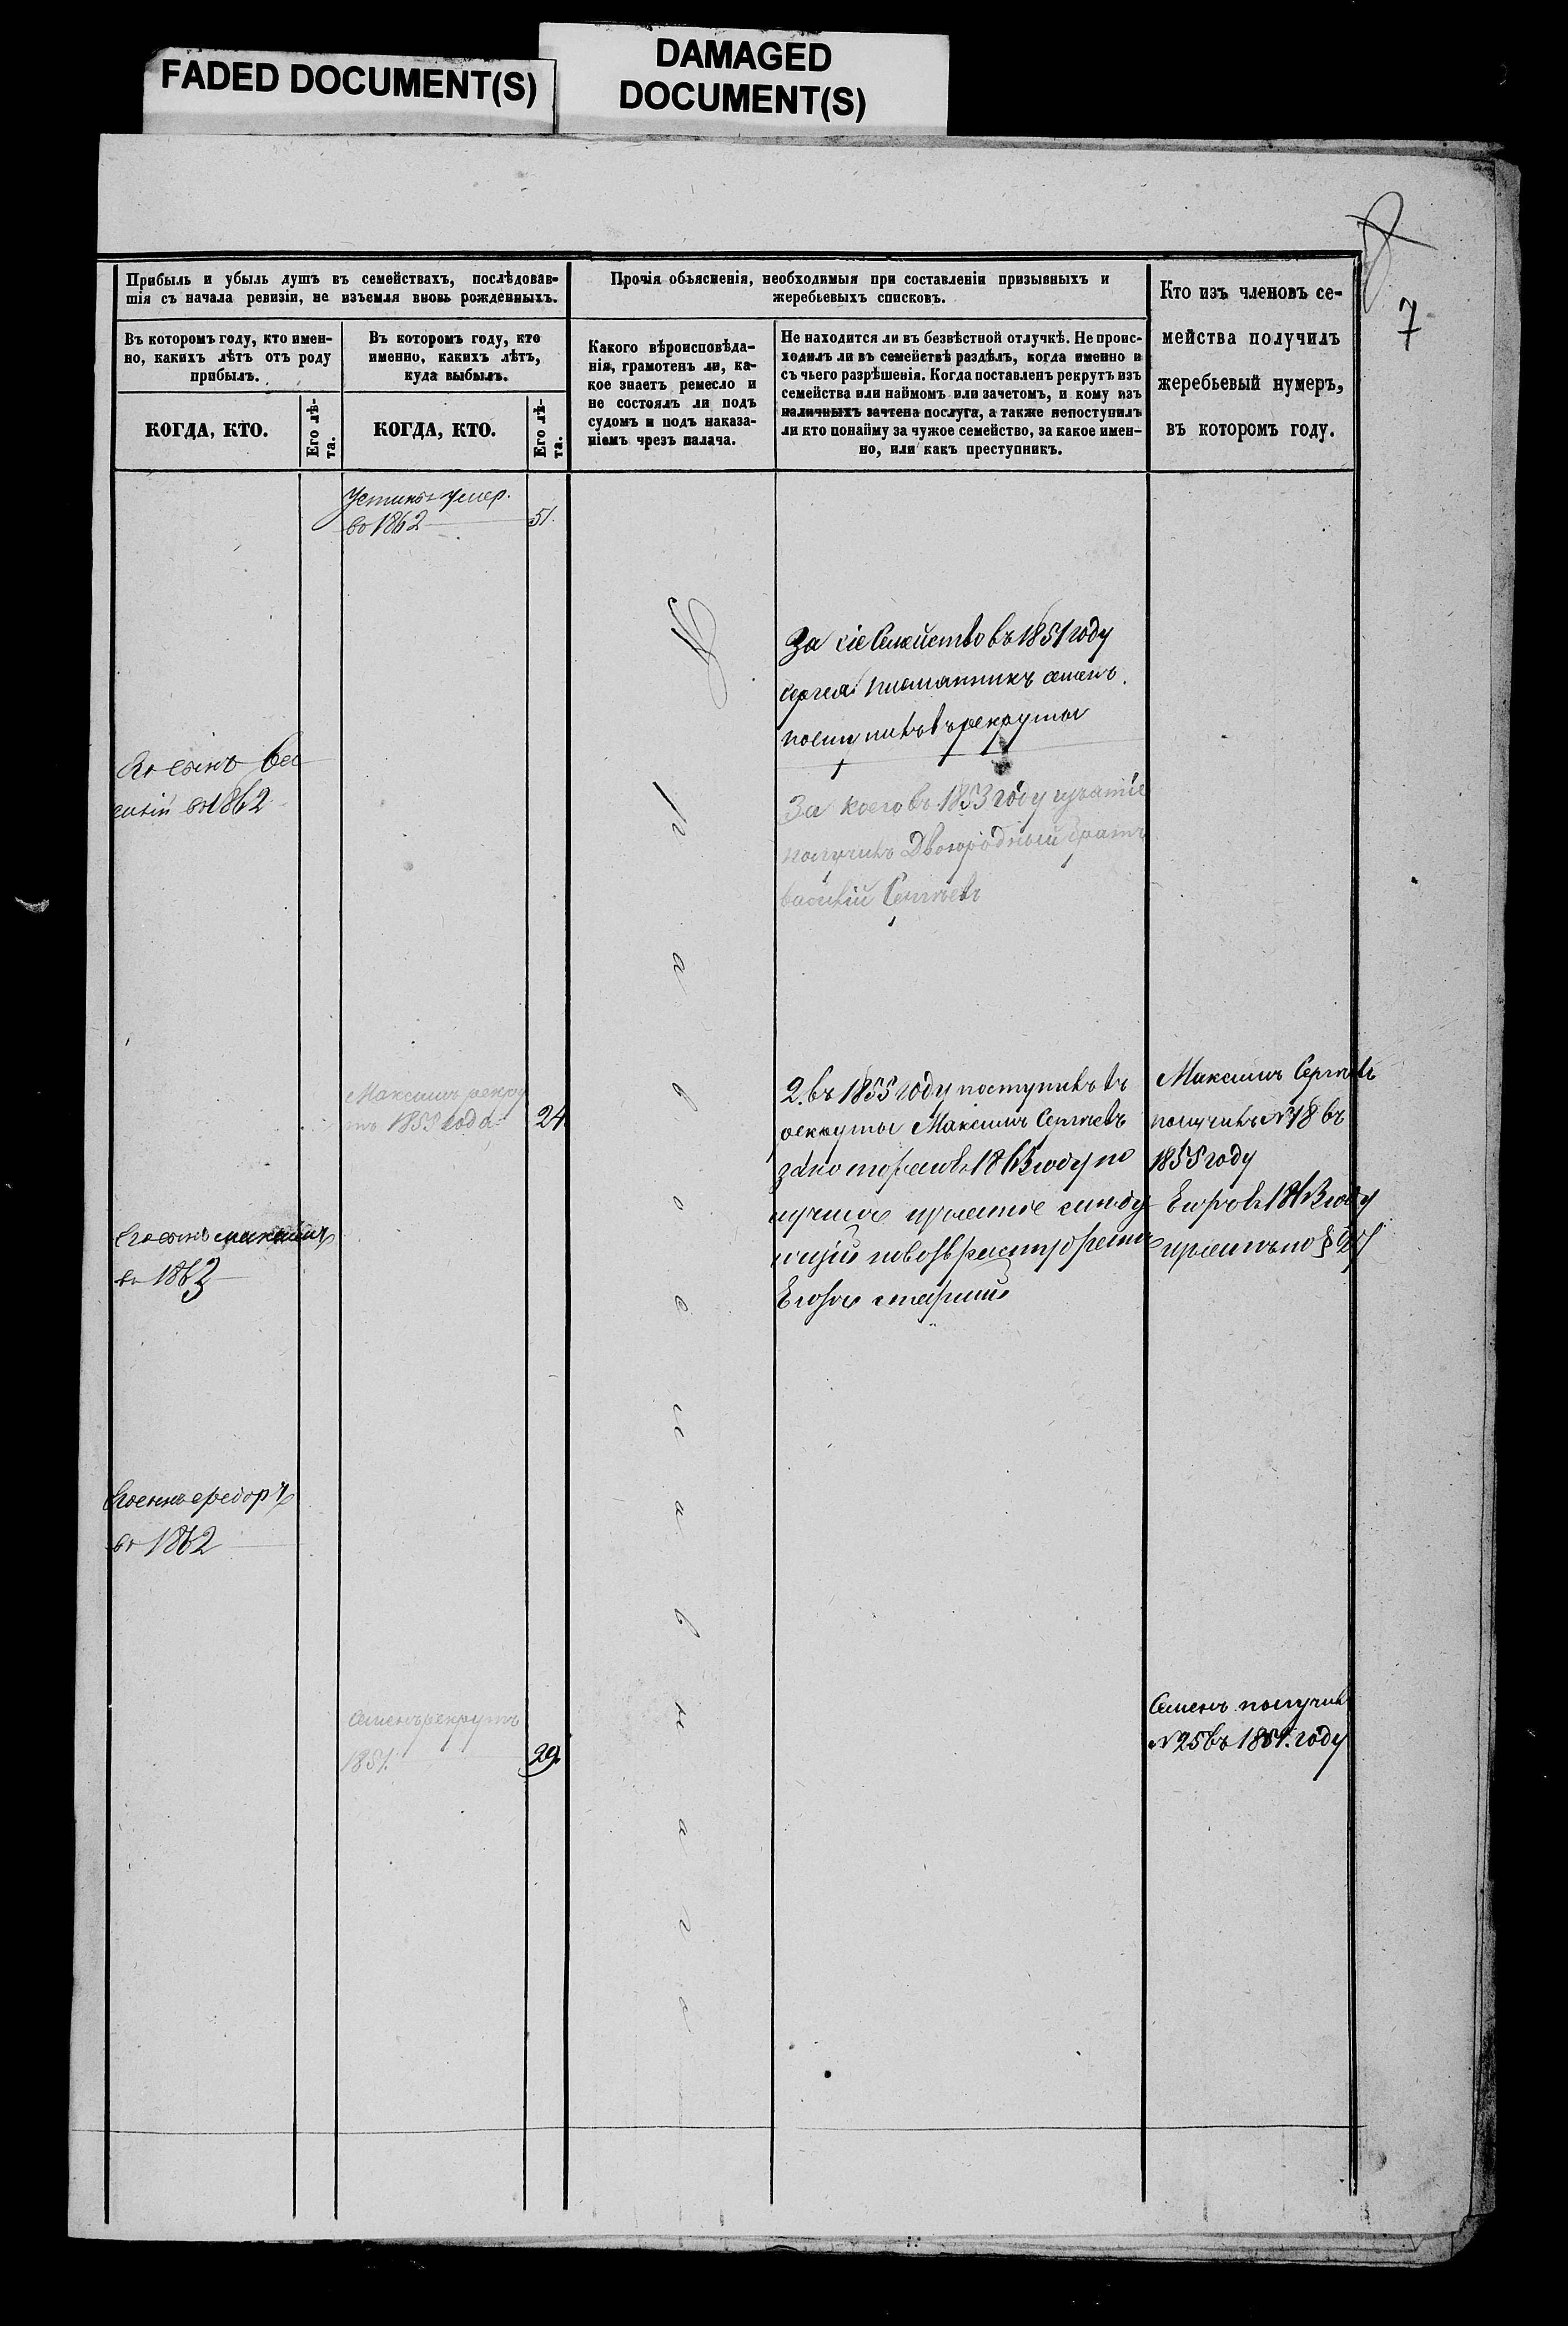 FADED DOCUMENT(S)
DAMAGED
DOCUMENT(S)
7
Прибыль и убыль душъ въ семействахъ, послѣдовав-
шія съ начала ревизіи, не изъемля вновь рожденныхъ.
Прочія объясненія, необходимыя при составленіи призывныхъ и
жеребьевыхъ списковъ.
Кто изъ членовъ се-
мейства получилъ
жеребьевый нумеръ,
въ которомъ году.
Въ которомъ году, кто имен-
но, какихъ лѣтъ отъ роду
прибылъ.
Въ которомъ году, кто
именно, какихъ лѣтъ,
куда выбылъ.
Какого вѣроисповѣда-
нія, грамотенъ ли, ка-
кое знаетъ ремесло и
не состоялъ ли подъ
судомъ и подъ наказа-
ніемъ чрезъ палача.
Не находится ли въ безвѣстной отлучкѣ. Не проис-
ходилъ ли въ семействѣ раздѣлъ, когда именно и
съ чьего разрѣшенія. Когда поставленъ рекрутъ изъ
семейства или наймомъ или зачетомъ, и кому изъ
наличныхъ зачтена послуга, а также непоступилъ
ли кто понайму за чужое семейство, за какое имен-
но, или какъ преступникъ.
КОГДА, КТО.
Его лѣ-
та.
КОГДА, КТО.
Его лѣ-
та.
Устинъ умер.
во 1862
51.
За сіе Семейство въ 1851 году
сергея племянникъ семенъ
поступилъ въ рекруты
Его сынъ Ва
силій во 1862
За коего въ 1853 году
получилъ Двоюродный братъ
василій Сергѣевъ
П р а в о с л а в н а г о
Максимъ рекру
тъ 1855 года
24
2. въ 1855 году поступилъ въ
рекруты Максимъ Сергѣевъ
за котораго въ 1863 году по
Егоръ старший
Максимъ Сергѣевъ
получилъ № 18 въ
1855 году
Егоръ въ 1863 году
Его сынъ максимъ
во 1862
Его сынъ федоръ
во 1862
Семенъ рекрутъ
1851.
29
Семенъ получилъ
№ 25 въ 1851. году